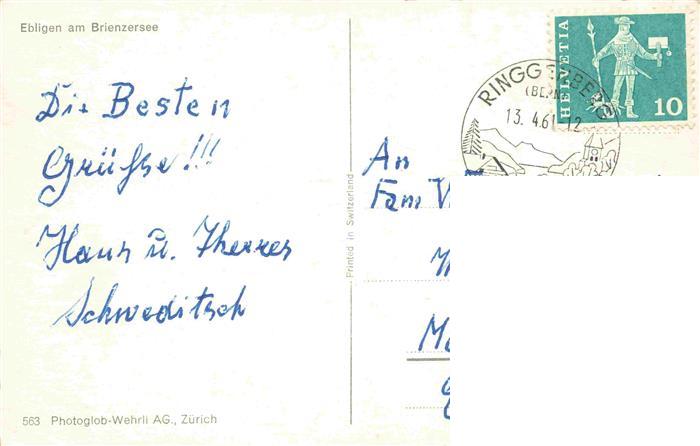 Ebligen am Brienzersee
HELVETIA
10
RINGGENBERG
(BERN)
13. 4.61-12
Die Besten
Grüsse!!!
Hans u. Therres
Schweditsch
Printed in Switzerland
An
Fam
563 Photoglob-Wehrli AG., Zürich